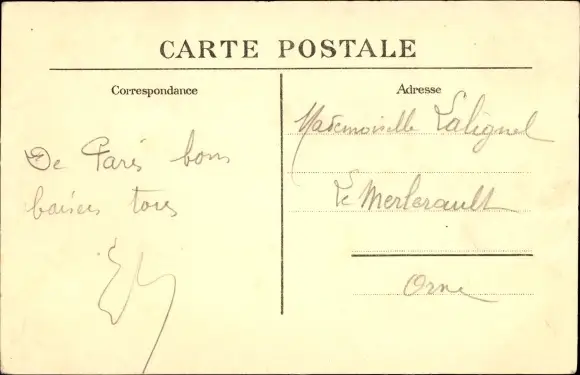 CARTE POSTALE
Correspondance
Adresse
De Paris bons
baisers tous
Mademoiselle Lalignel
Le Merlerault
Orne